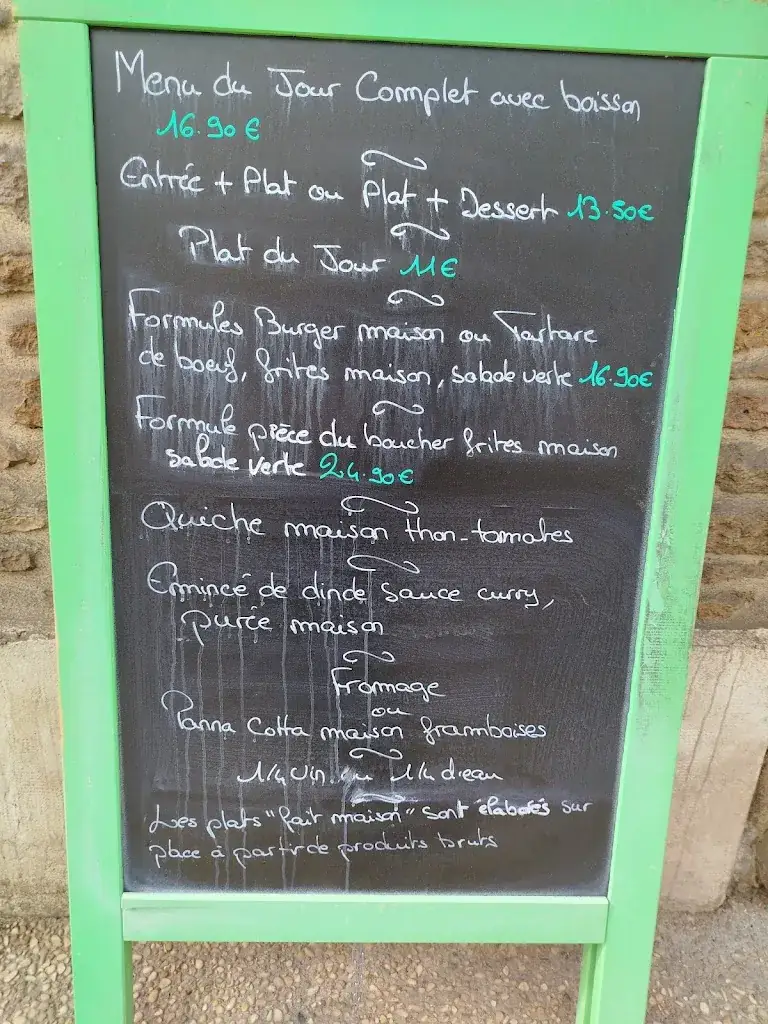 Menu du Jour Complet avec boisson
16.90€
Entrée + Plat ou Plat + Dessert 13.50€
Plat du Jour 11€
Formules Burger maison ou Tartare
de boeuf, frites maison, salade verte 16.90€
Formule pièce du boucher frites maison
salade verte 24.90€
Quiche maison thon-tomates
Emincé de dinde sauce curry,
purée maison
Fromage
ou
Panna Cotta maison framboises
1/4 vin ou 1/4 d'eau
Les plats "fait maison" sont élaborés sur
place à partir de produits bruts